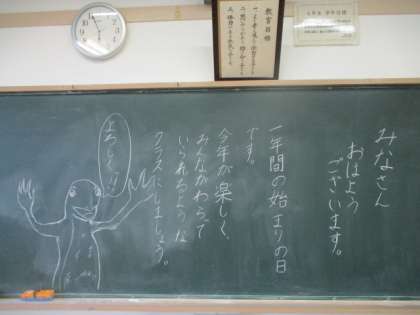 みなさん
おはよう
ございます。
一年間の始まりの日
です。
今年が楽しく、
みんながわらって
いられるような
クラスにしましょう。
よろしく!!
教育目標